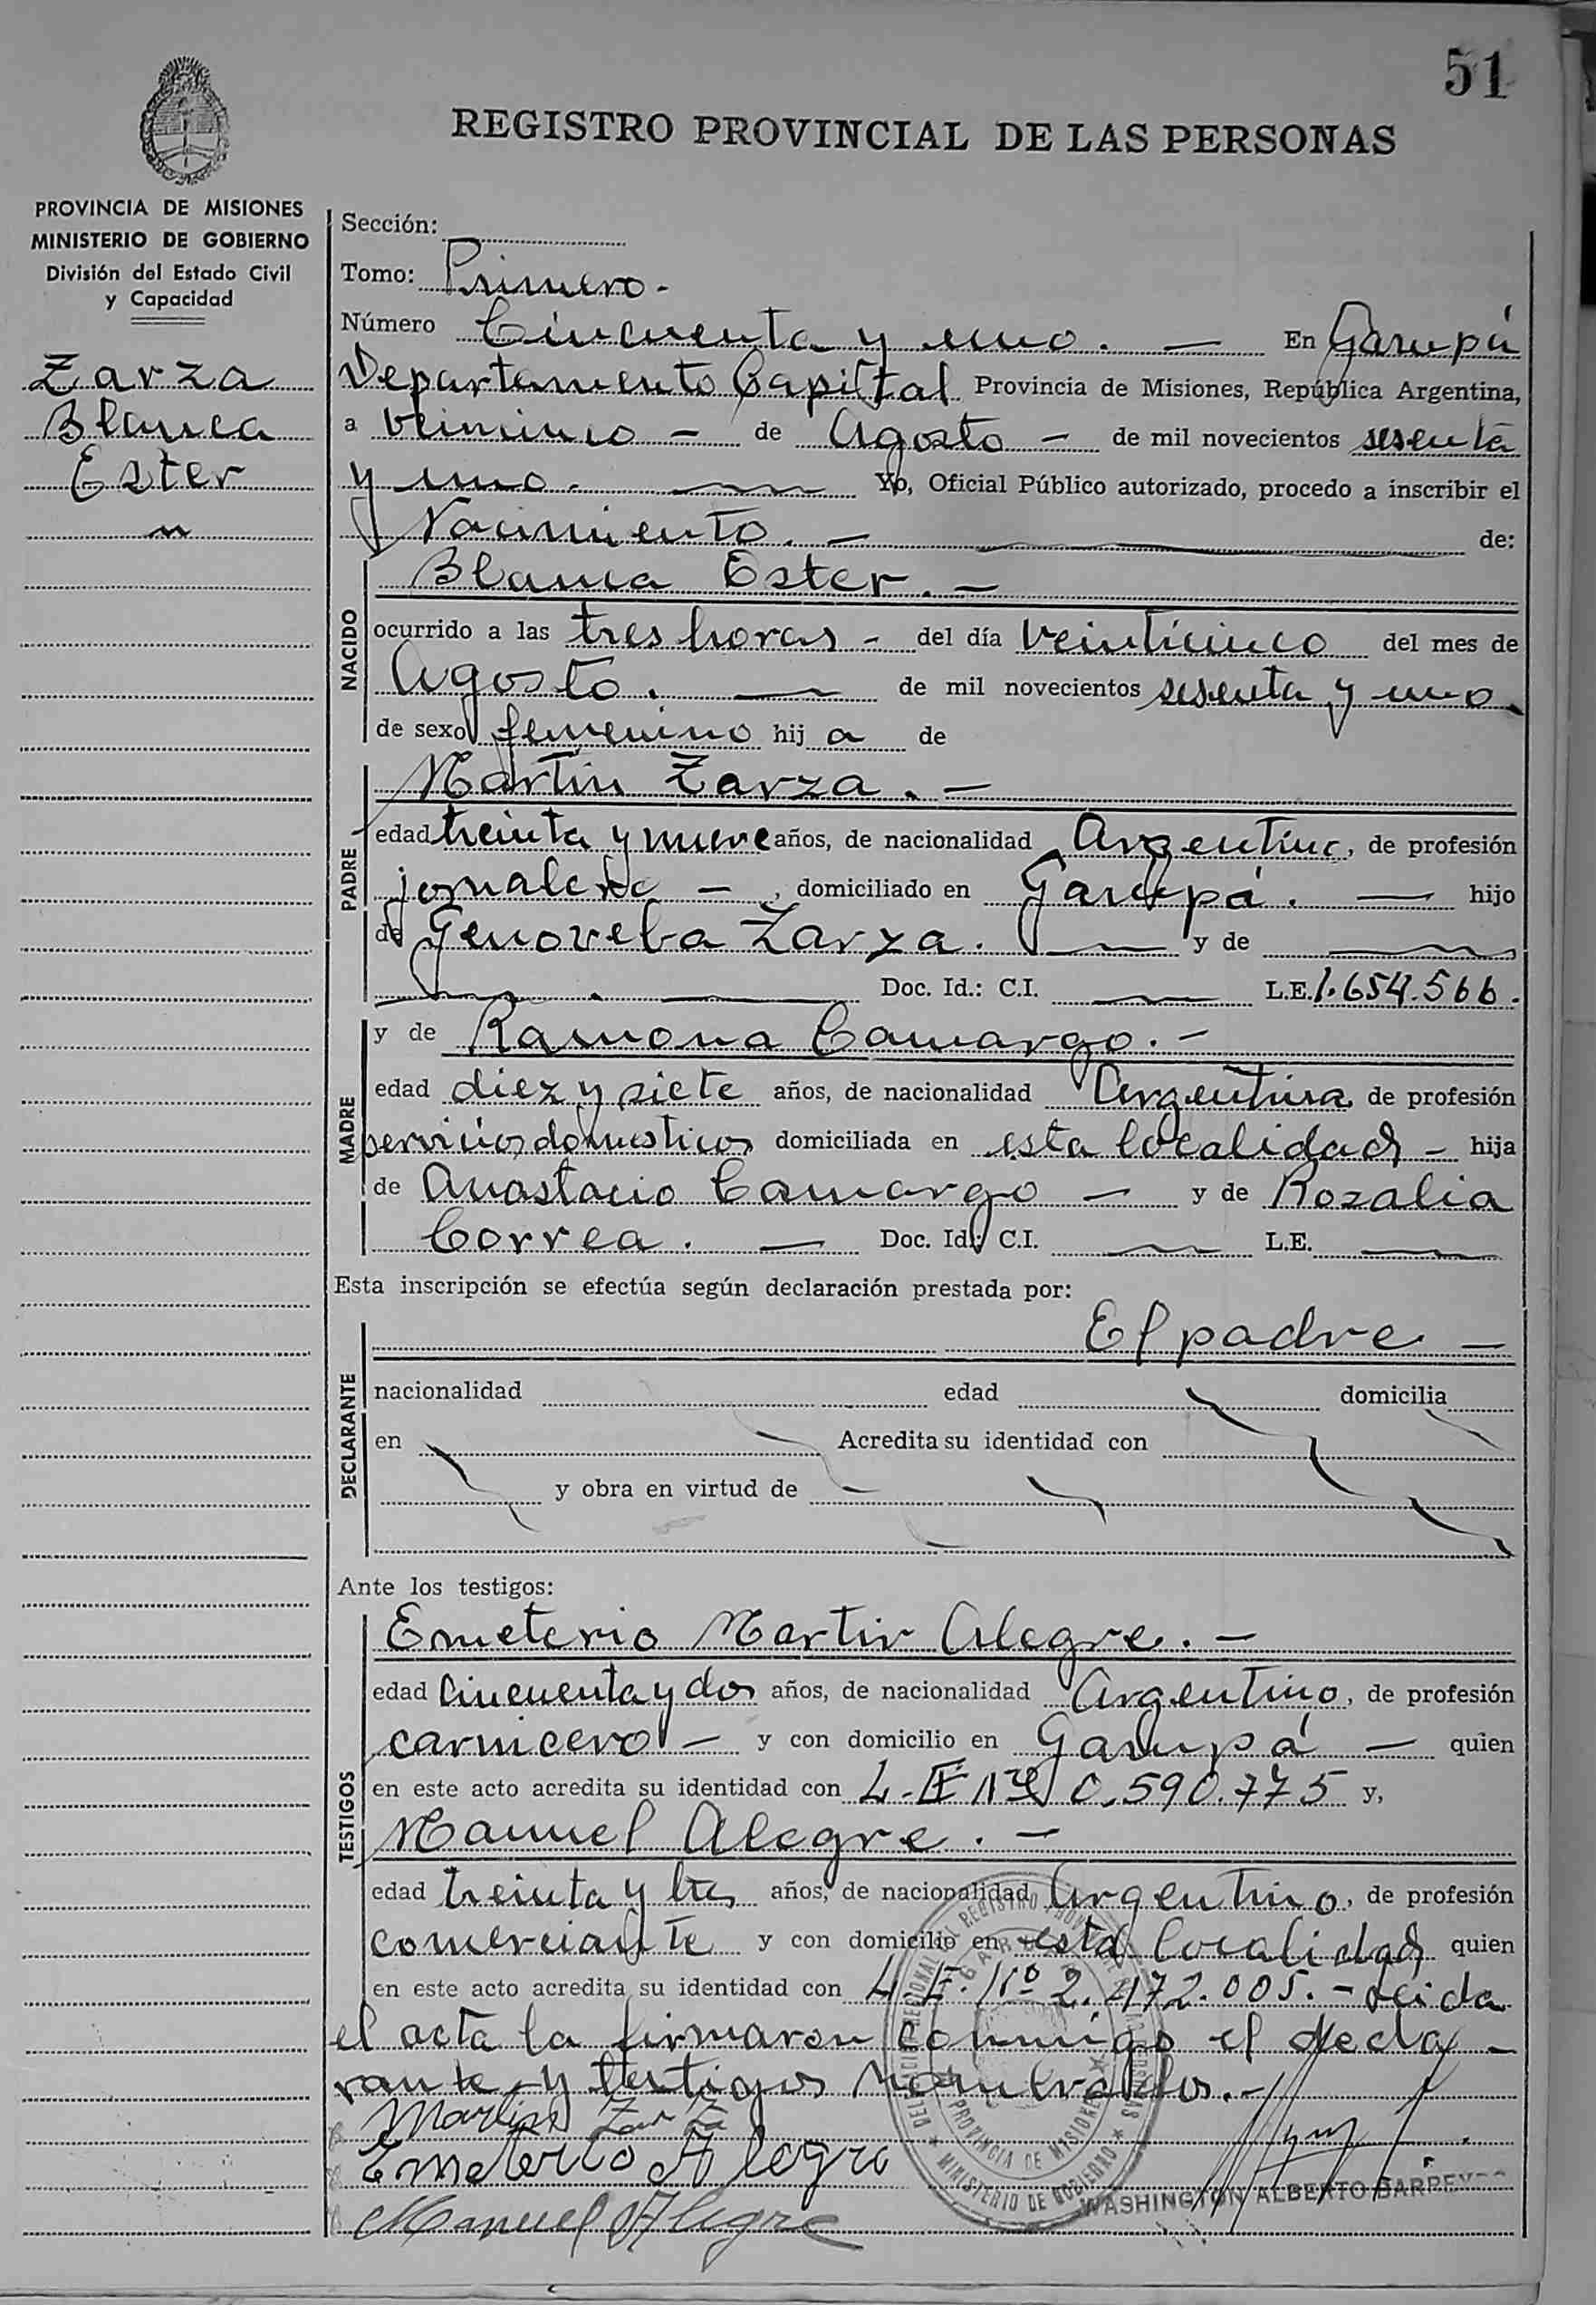 51
REGISTRO PROVINCIAL DE LAS PERSONAS
PROVINCIA DE MISIONES
MINISTERIO DE GOBIERNO
División del Estado Civil
y Capacidad
Zarza
Blanca
Ester
Sección:
Tomo: Primero.-
Número Cincuenta y uno. — En Garupá
Departamento Capital Provincia de Misiones, República Argentina,
a de Agosto - de mil novecientos sesenta
y uno. Yo, Oficial Público autorizado, procedo a inscribir el
Nacimiento. - de:
NACIDO
Blanca Ester. -
ocurrido a las tres horas - del día veinticinco del mes de
Agosto. — de mil novecientos sesenta y uno.
de sexo femenino hij a de
PADRE
Martin Zarza. -
edad treinta y nueve años, de nacionalidad Argentino, de profesión
jornalero - , domiciliado en Garupá. — hijo
de Genoveba Zarza. — y de —
— . — Doc. Id.: C.I. — L.E. 1.654.566.
MADRE
y de Ramona Camargo. -
edad diez y siete años, de nacionalidad Argentina de profesión
servicios domesticos domiciliada en esta localidad - hija
de Anastacio Camargo — y de Rozalia
Correa. — Doc. Id.: C.I. — L.E. —
Esta inscripción se efectúa según declaración prestada por:
DECLARANTE
El padre —
nacionalidad edad domicilia
en Acredita su identidad con
y obra en virtud de
Ante los testigos:
TESTIGOS
Emeterio Martir Alegre. -
edad Cincuenta y dos años, de nacionalidad Argentino, de profesión
carnicero - y con domicilio en Garupá — quien
en este acto acredita su identidad con L.E Nº 0.590.775 y,
Manuel Alegre. -
edad treinta y tres años, de nacionalidad Argentino, de profesión
comerciante y con domicilio en esta localidad quien
en este acto acredita su identidad con L.E. Nº 2.472.005. - Leida
el acta la firmaron conmigo el decla-
rante y testigos nombrados. -
Martin Zarza
Emeterio Alegre
Manuel Alegre
PROVINCIA DE MISIONES
MINISTERIO DE GOBIERNO
WASHINGTON ALBERTO